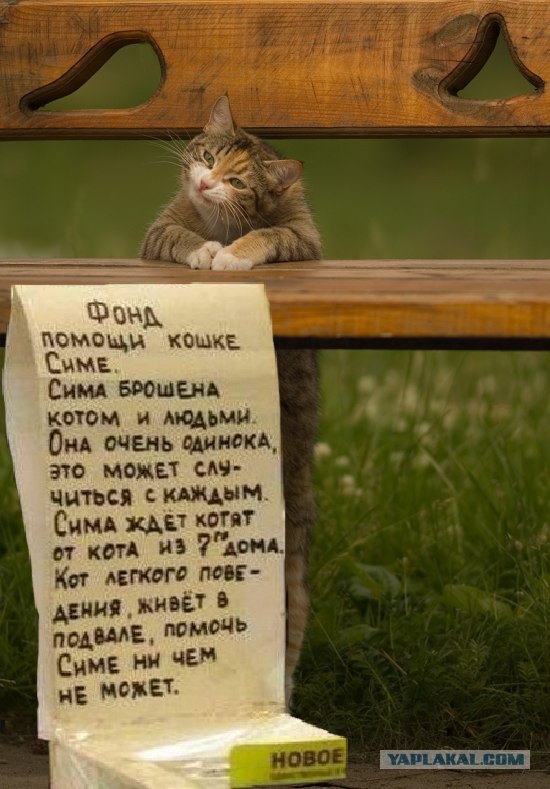 Фонд
помощи кошке
Симе.
Сима брошена
котом и людьми.
Она очень одинока,
это может слу-
читься с каждым.
Сима ждёт котят
от кота из 7го дома.
Кот легкого пове-
дения, живёт в
подвале, помочь
Симе ни чем
не может.
НОВОЕ
YAPLAKAL.COM